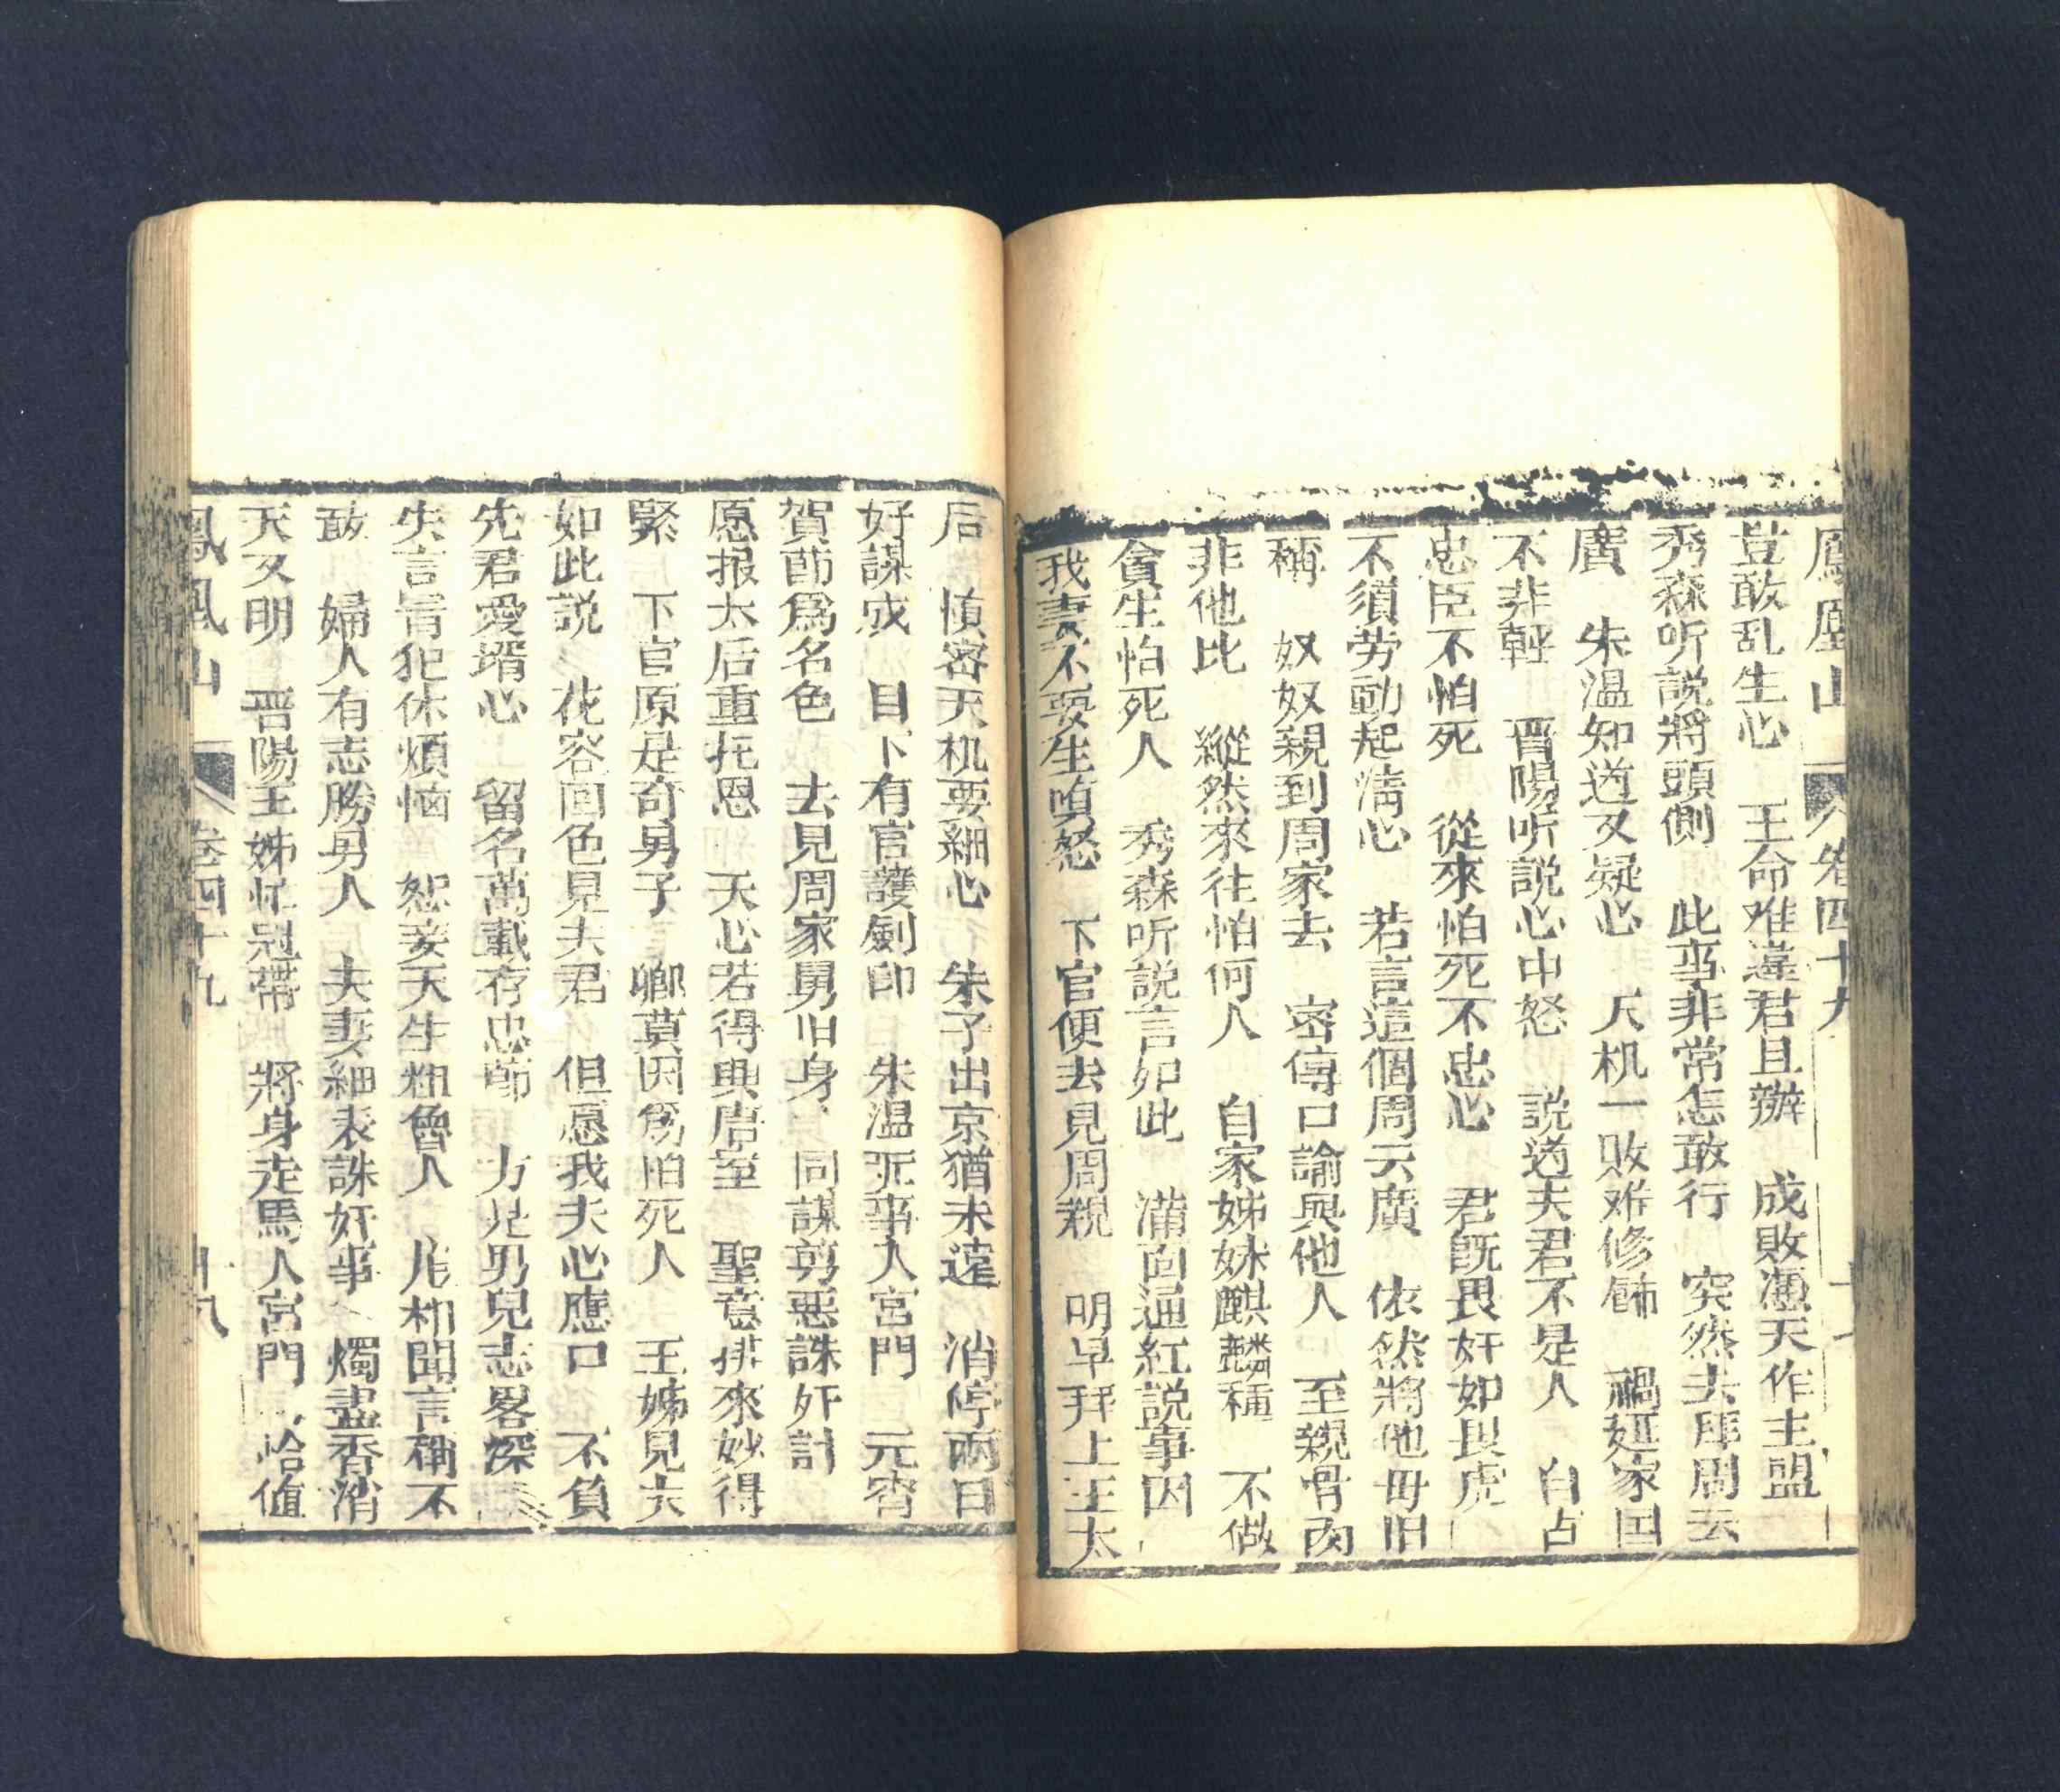 鳳凰山 卷四十九 十七
豈敢乱生心 王命难違君且辦 成敗憑天作主盟
秀森听説將頭側 此事非常怎敢行 突然去拜周云
廣 朱温知道又疑心 天机一敗难修餙 禍延家国
不非輕 晋陽听説心中怒 説道夫君不是人 自古
忠臣不怕死 從來怕死不忠心 君既畏奸如畏虎
不須劳動起清心 若言這個周云廣 依然將他毋旧
稱 奴奴親到周家去 密傳口諭與他人 至親骨肉
非他比 縱然來往怕何人 自家姊妹麒麟種 不做
貪生怕死人 秀森听説言如此 滿面逼紅説事因
我妻不要生嗔怒 下官便去見周親 明早拜上王太
后 慎密天机要細心 朱子出京猶未遠 消停兩日
好謀成 目下有官護劍印 朱温无事入宮門 元宵
賀節爲名色 去見周家舅旧身 同謀剪惡誅奸計
愿报太后重托恩 天心若得興唐室 聖意排來妙得
緊 下官原是奇男子 鄉莫因爲怕死人 王姊見夫
如此説 花容回色見夫君 但愿我夫心應口 不負
先君愛壻心 留名萬載存忠節 方是男兒志畧深
失言冒犯休煩恼 恕妾天生粗魯人 彪相聞言稱不
敢 婦人有志勝男人 夫妻細表誅奸事 燭盡香消
天又明 晋陽王姊忙冠帶 將身走馬入宮門 恰值
鳳凰山 卷四十九 十八